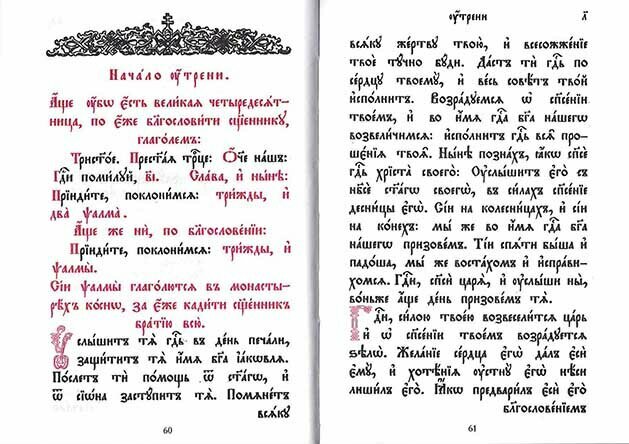 Нача́ло ᲂу҆́трени.
А҆́ще ᲂу҆́бѡ є҆́сть вели́каѧ четыредесѧ́т-
ница, по є҆́же бл҃гослови́ти сщ҃е́ннику,
глаго́лемъ:
Трист҃о́е. Прест҃а́ѧ трⷪ҇це: Ѻ҆́ч҃е на́шъ:
Гдⷭ҇и поми́лꙋй, в҃і. Сла́ва, и҆ ны́нѣ:
Прїиди́те, поклони́мсѧ: три́жды, и҆
два̀ ѱалма̑.
А҆́ще же ни̑, по бл҃гослове́нїи:
Прїиди́те, поклони́мсѧ: три́жды, и҆
ѱалмы̀.
Сі́и ѱалмы̀ глаго́лютсѧ въ монасты-
рѣ́хъ ко́снѡ, за є҆́же кади́ти сщ҃е́нникꙋ
бра́тїю всю̀.
Оу҆слы́шитъ тѧ̀ гдⷭ҇ь въ де́нь печа́ли,
защи́титъ тѧ̀ и҆́мѧ бг҃а і҆а́кѡвлѧ.
По́слетъ тѝ по́мощь ѿ ст҃а́гѡ, и҆
ѿ сїѡ́на застꙋ́питъ тѧ̀. Помѧне́тъ
всѧ́кꙋ
60
ᲂу҆́трени л҃
всѧ́кꙋ же́ртвꙋ твою̀, и҆ всесожже́нїе
твоѐ тꙋ́чно бꙋ́ди. Да́стъ тѝ гдⷭ҇ь по
се́рдцꙋ твоемꙋ̀, и҆ ве́сь совѣ́тъ тво́й
и҆спо́лнитъ. Возра́дꙋемсѧ ѡ҆ сп҃се́нїи
твое́мъ, и҆ во и҆́мѧ гдⷭ҇а бг҃а на́шегѡ
возвели́чимсѧ: и҆спо́лнитъ гдⷭ҇ь всѧ̑ про-
ше́нїѧ твоѧ̑. Ны́нѣ позна́хъ, ꙗ҆́кѡ сп҃сѐ
гдⷭ҇ь хрⷭ҇та̀ своего̀: ᲂу҆слы́шитъ є҆го̀ съ
нб҃сѐ ст҃а́гѡ своегѡ̀, въ си́лахъ сп҃се́нїе
десни́цы є҆гѡ̀. Сі́и на колесни́цахъ, и҆ сі́и
на ко́нехъ: мы́ же во и҆́мѧ гдⷭ҇а бг҃а
на́шегѡ призове́мъ. Ті́и спѧ́ти бы́ша и҆
падо́ша, мы́ же воста́хомъ и҆ и҆спра́ви-
хомсѧ. Гдⷭ҇и, сп҃сѝ царѧ̀, и҆ ᲂу҆слы́ши ны̀,
во́ньже а҆́ще де́нь призове́мъ тѧ̀.
Гдⷭ҇и, си́лою твое́ю возвесели́тсѧ ца́рь
и҆ ѡ҆ сп҃се́нїи твое́мъ возра́дꙋетсѧ
ѕѣлѡ̀. Жела́нїе се́рдца є҆гѡ̀ да́лъ є҆сѝ
є҆мꙋ̀, и҆ хотѣ́нїѧ ᲂу҆стнꙋ̀ є҆гѡ̀ нѣ́си
лиши́лъ є҆го̀. Ꙗ҆́кѡ предвари́лъ є҆сѝ є҆го̀
бл҃гослове́нїемъ
61